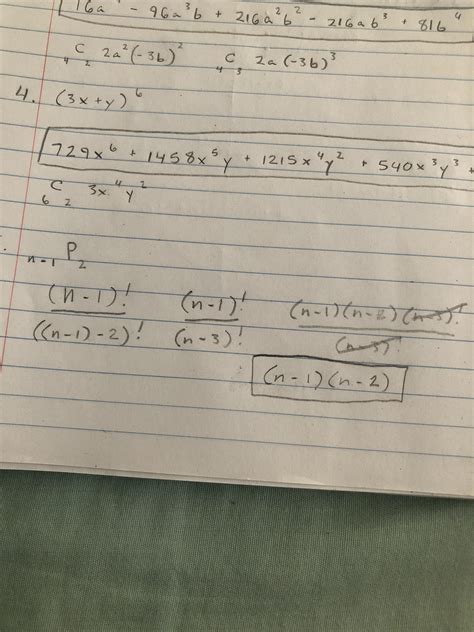 16a⁴ - 96a³b + 216a²b² - 216ab³ + 81b⁴
₄C₂ 2a²(-3b)² ₄C₃ 2a(-3b)³
4. (3x+y)⁶
729x⁶ + 1458x⁵y + 1215x⁴y² + 540x³y³ +
₆C₂ 3x⁴y²
ₙ₋₁P₂
(n-1)! / ((n-1)-2)! (n-1)! / (n-3)! (n-1)(n-2)(n-3)! / (n-3)!
(n-1)(n-2)